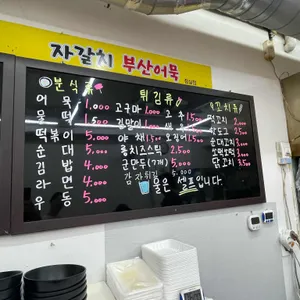 자갈치 부산어묵
분식류
어묵 1,000
떡 1,500
떡볶이 5,000
순대 5,000
김밥 4,000
라면 4,000
우동 5,000
튀김류
고구마 1,000
김말이
야채 1,500
롤치즈스틱 2,500
군만두(7개) 5,000
감자튀김 5,000
고추 1,500
오징어 1,500
꼬치류
떡꼬치
핫도그
순대꼬치 3,000
소떡소떡 3,000
닭꼬치 3,500
물은 셀프입니다.